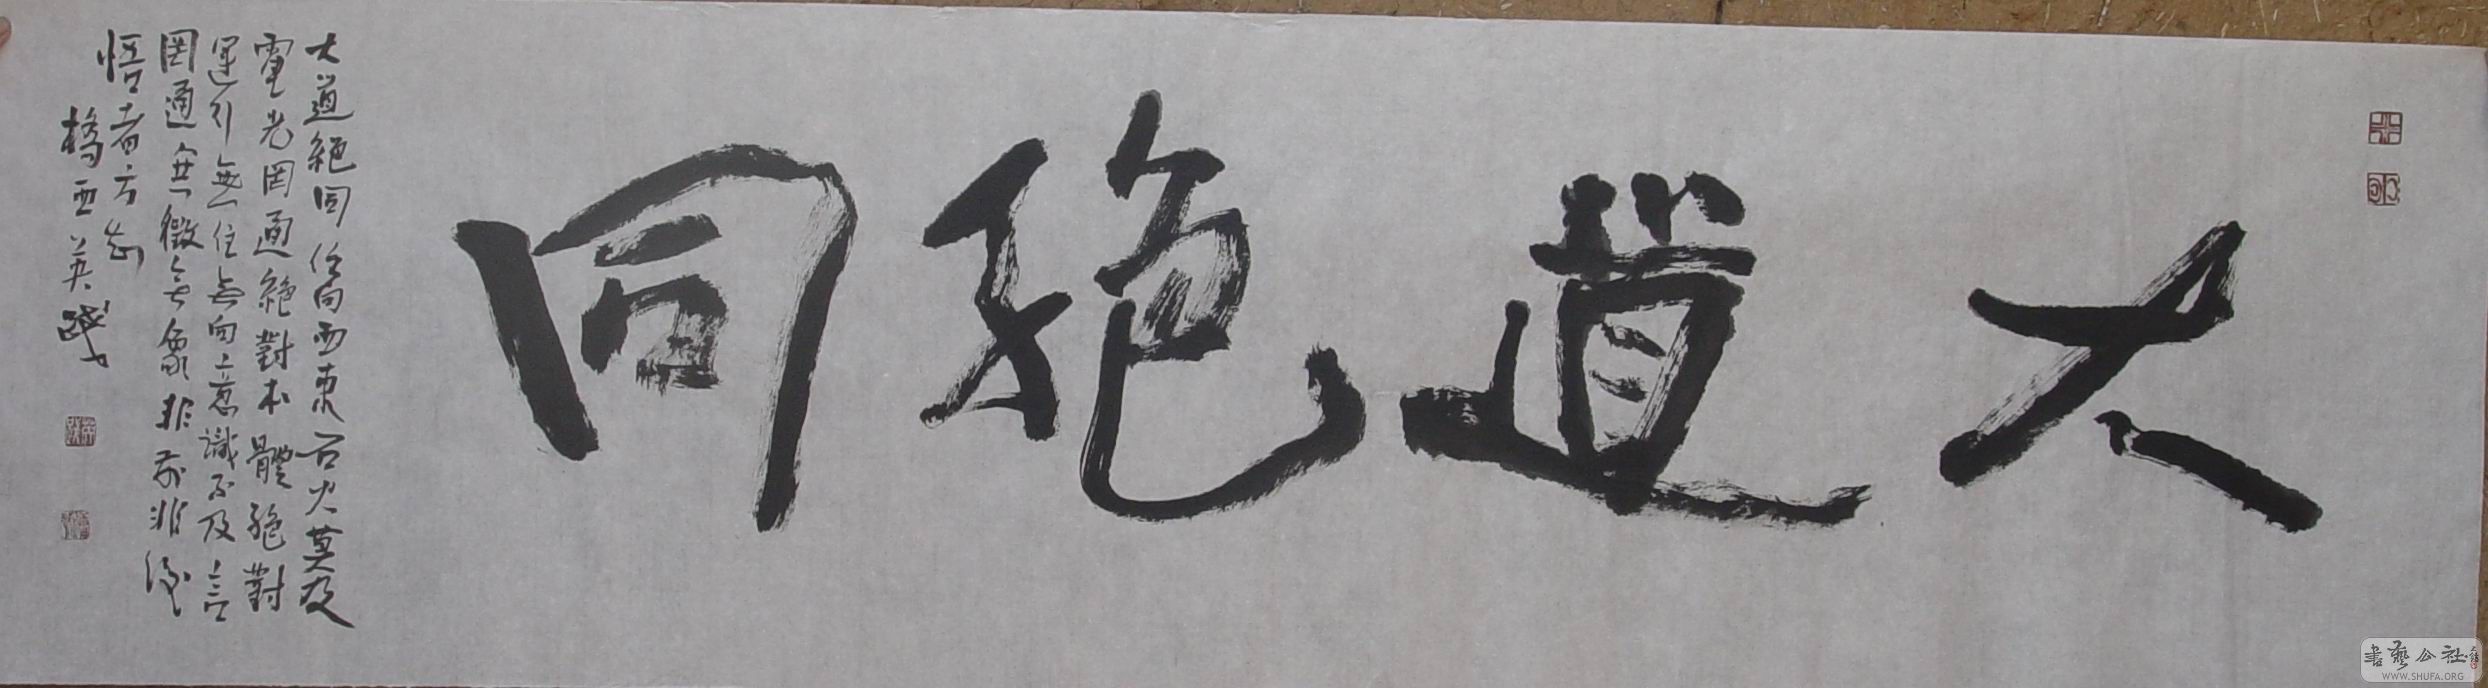 大道絕同
大道絕同任向西東石火莫及
電光罔通絕對本體絕對
運行無住無向意識不及言
罔通無徵無象非前非後
悟者方知
橋西英
書藝公社
WWW.SHUFA.ORG